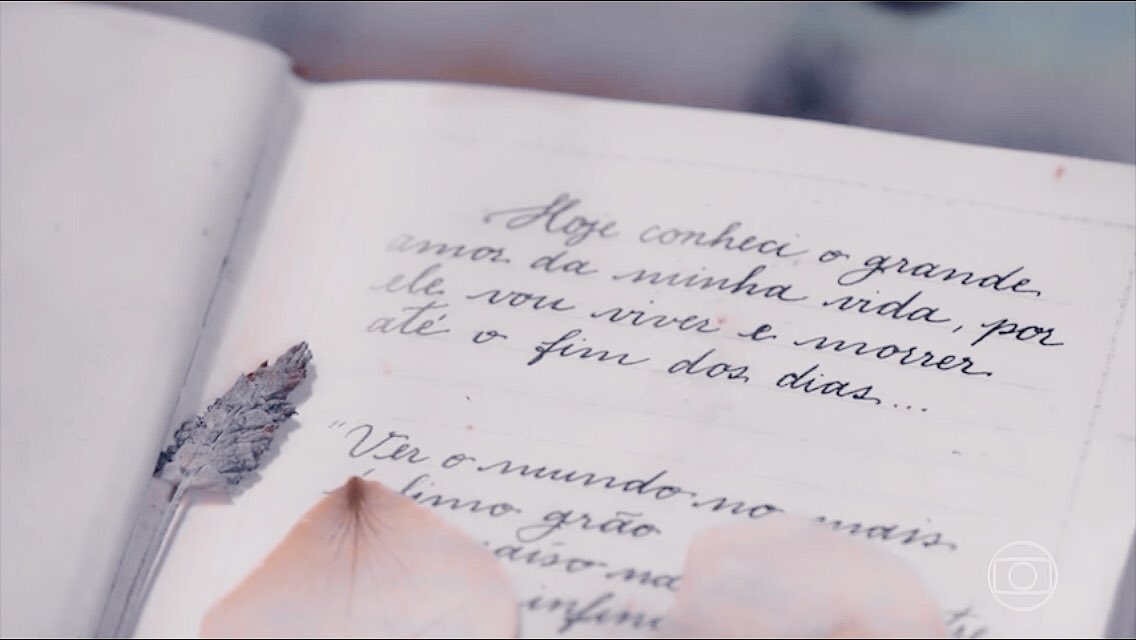 Hoje conheci o grande
amor da minha vida, por
ele vou viver e morrer
até o fim dos dias...
"Ver o mundo no mais
grão